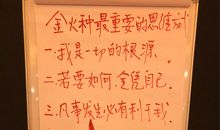 金火种最重要的思维方式
一.我是一切的根源.
二.若要如何,全凭自己.
三.凡事发生必有利于我.